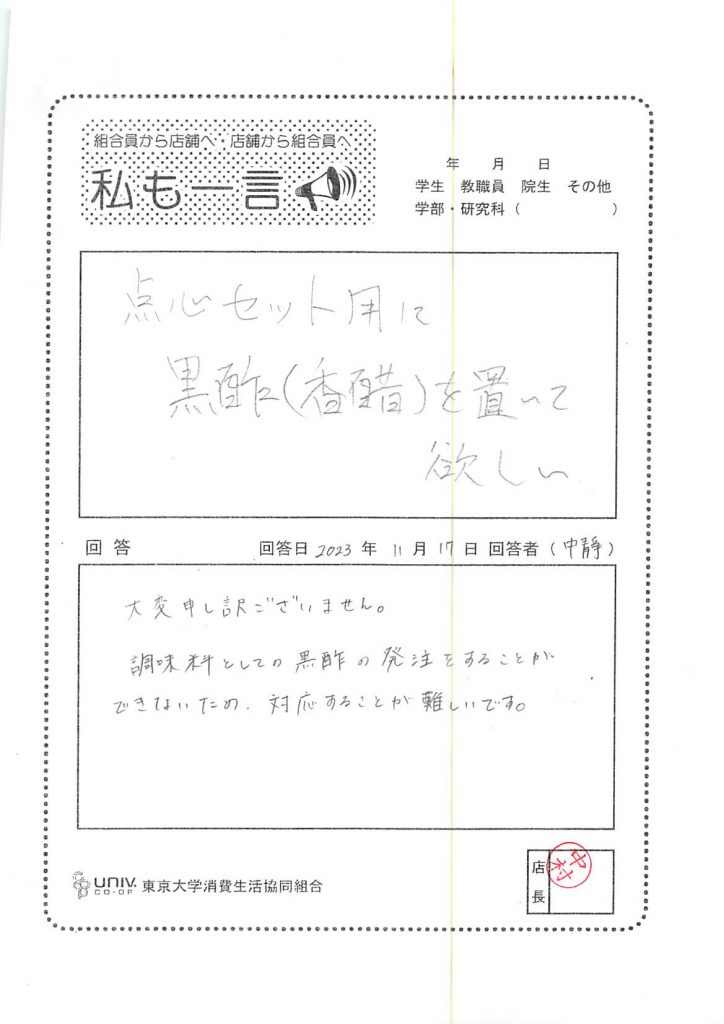 組合員から店舗へ・店舗から組合員へ
私も一言
年 月 日
学生 教職員 院生 その他
学部・研究科( )
点心セット用に
黒酢(香醋)を置いて
欲しい
回答 回答日 2023 年 11 月 17 日 回答者(中靜)
大変申し訳ございません。
調味料としての黒酢の発注をすることが
できないため、対応することが難しいです。
UNIV.
CO-OP
東京大学消費生活協同組合
店長
中村